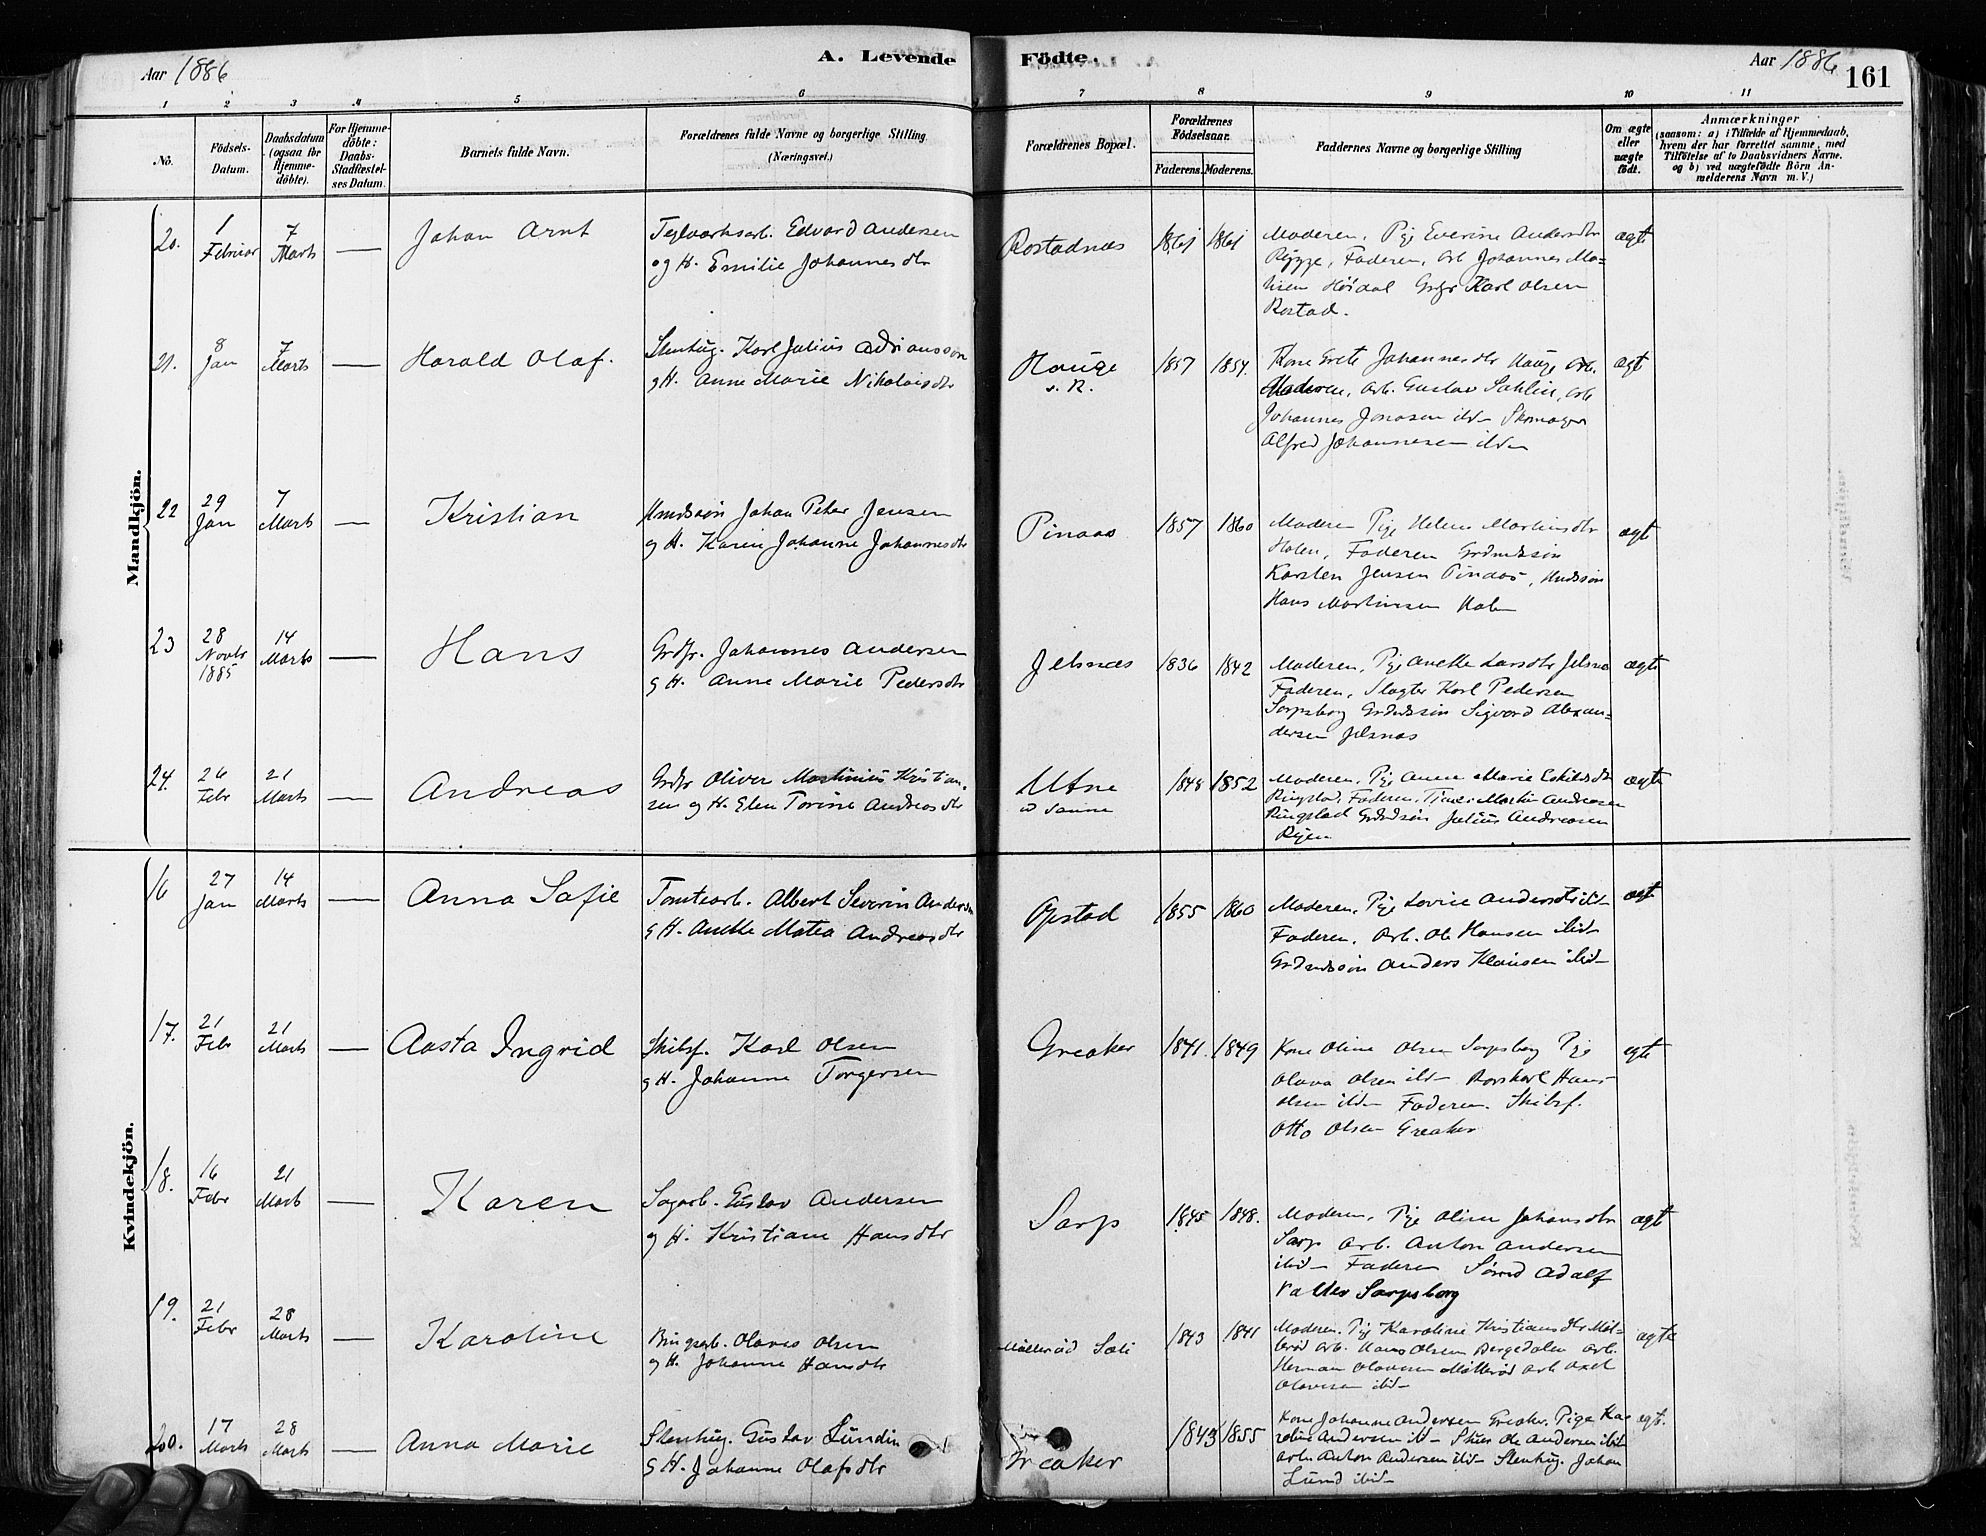 Aar 1886
A. Levende
Födte.
Aar 1886
161
1 2 3 4 5 6 7 8 9 10 11
No.
Födsels-
Datum.
Daabsdatum
(ogsaa for
Hjemme-
döbte).
For Hjemme-
döbte:
Daabs-
Stadfæstel-
ses Datum.
Barnets fulde Navn.
Forældrenes fulde Navne og borgerlige Stilling
(Næringsvei.)
Forældrenes Bopæl.
Forældrenes
Födselsaar.
Faderens. Moderens.
Faddernes Navne og borgerlige Stilling
Om ægte
eller
uægte
födt.
Anmærkninger
(saasom: a) i Tilfælde af Hjemmedaab,
hvem der har forrettet samme, med
Tilföielse af to Daabsvidners Navne,
og b) ved uægtefödte Börn An-
melderens Navn m. V.)
Mandkjön.
20.
1
Februar
7
Marts
—
Johan Arnt
Teglværksarb. Edvard Andersen
og H. Emilie Johannesdtr
Rostadnæs
1861 1861
Moderen, Pige Everine Andersdtr
Rygge, Faderen, Arb Johannes Ma-
Høidal Grdbr Karl Olsen
Rostad.
ægte
21.
8
Jan
7
Marts
—
Harald Olaf.
Stenhug. Karl Julius Adriansson
og H. Anne Marie Nikolaisdtr
Hauge
s. R.
1857 1854.
Kone Grete Johannesdtr Hauge Arb.
Moderen, Arb. Gustav Sahlin, Arb
Johannes Jonasen ibid- Skomager
Alfred Johannesen ibid-
ægte
22
29
Jan
7
Marts
—
Kristian
Husmdsøn Johan Peter Jensen
og H. Karen Johanne Johannesdtr
Pinaas
1857 1860
Moderen Pige Helene Martinsdtr
Holen, Faderen Grdmdssøn
Karsten Jensen Pinaas, Husmdssøn
Hans Martinsen Holen
ægte
23
28
Novbr
1885
14
Marts
—
Hans
Grdbr. Johannes Andersen
og H. Anne Marie Pedersdtr
Jelsnæs
1836 1842
Moderen, Pige Anette Larsdtr Jelsnæs
Faderen, Slagter Karl Pedersen
Sarpsborg Grdmdssøn Sigvard Alexan-
dersen Jelsnæs
ægte
24.
26
Febr
21
Marts
—
Andreas
Grdbr Oliver Martinius Kristian-
sen og H. Elen Torine Andreasdtr
Utne
v Sanne
1848 1852
Moderen, Pige Anne Marie Eskildsdtr
Ringstad, Faderen, Tjener Martin Andreasen
Ringstad Grdmdssøn Julius Andreasen
Ryen
ægte
Kvindekjön.
16
27
Jan
14
Marts
—
Anna Sofie
Tomtearb. Albert Severin Andersen
og H. Anette Matea Andreasdtr
Opstad
1855 1860
Moderen, Pige Lovise Andersdtr ibid-
Faderen, Arb. Ole Hansen ibid-
Grdmdssøn Anders Klausen ibid-
ægte
17.
21
Febr
21
Marts
—
Aasta Ingrid
Skibsf. Karl Olsen
og H. Johanne Torgersen
Greaker
1841. 1849
Kone Oline Olsen Sarpsborg Pige
Olava Olsen ibid- Hans
Olsen ibid- Faderen. Skibsf.
Otto Olsen Greaker
ægte
18.
16
Febr
21
Marts
—
Karen
Sagarb. Gustav Andersen
og H. Kristiane Hansdtr
Sarp
1845 1848.
Moderen, Pige Oline Johansdtr
Sarp Arb. Anton Andersen
ibid- Faderen Adolf
Valter Sarpsborg
ægte
19.
21
Febr
28
Marts
—
Karoline
Brugsarb. Olaves Olsen
og H. Johanne Hansdtr
Møllerød Sæli
1843 1841
Moderen, Pige Karoline Kristiansdtr Møl-
lerød Arb. Hans Olsen Bergedalen Arb.
Herman Olavesen Møllerød Arb Axel
Olavesen ibid-
ægte
20.
17
Marts
28
Marts
—
Anna Marie
Stenhug. Gustav Lundin
og H. Johanne Olafsdtr
Greaker
1843 1855
Kone Johanne Andersen Greaker. Pige Ka-
roline Andersen ibid- Ole Andersen ibid
Arb. Anton Andersen ibid- Stenhug. Johan
Lund ibid-
ægt.